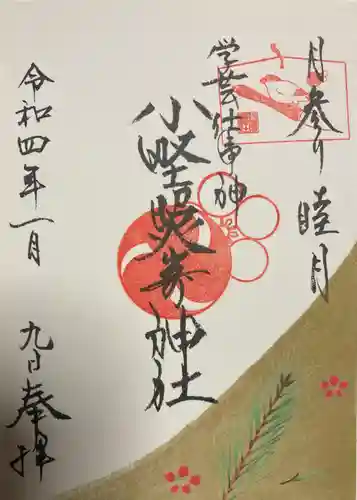 月参り 睦月
学芸仕事神
小野照崎神社
令和四年一月
九日奉拝